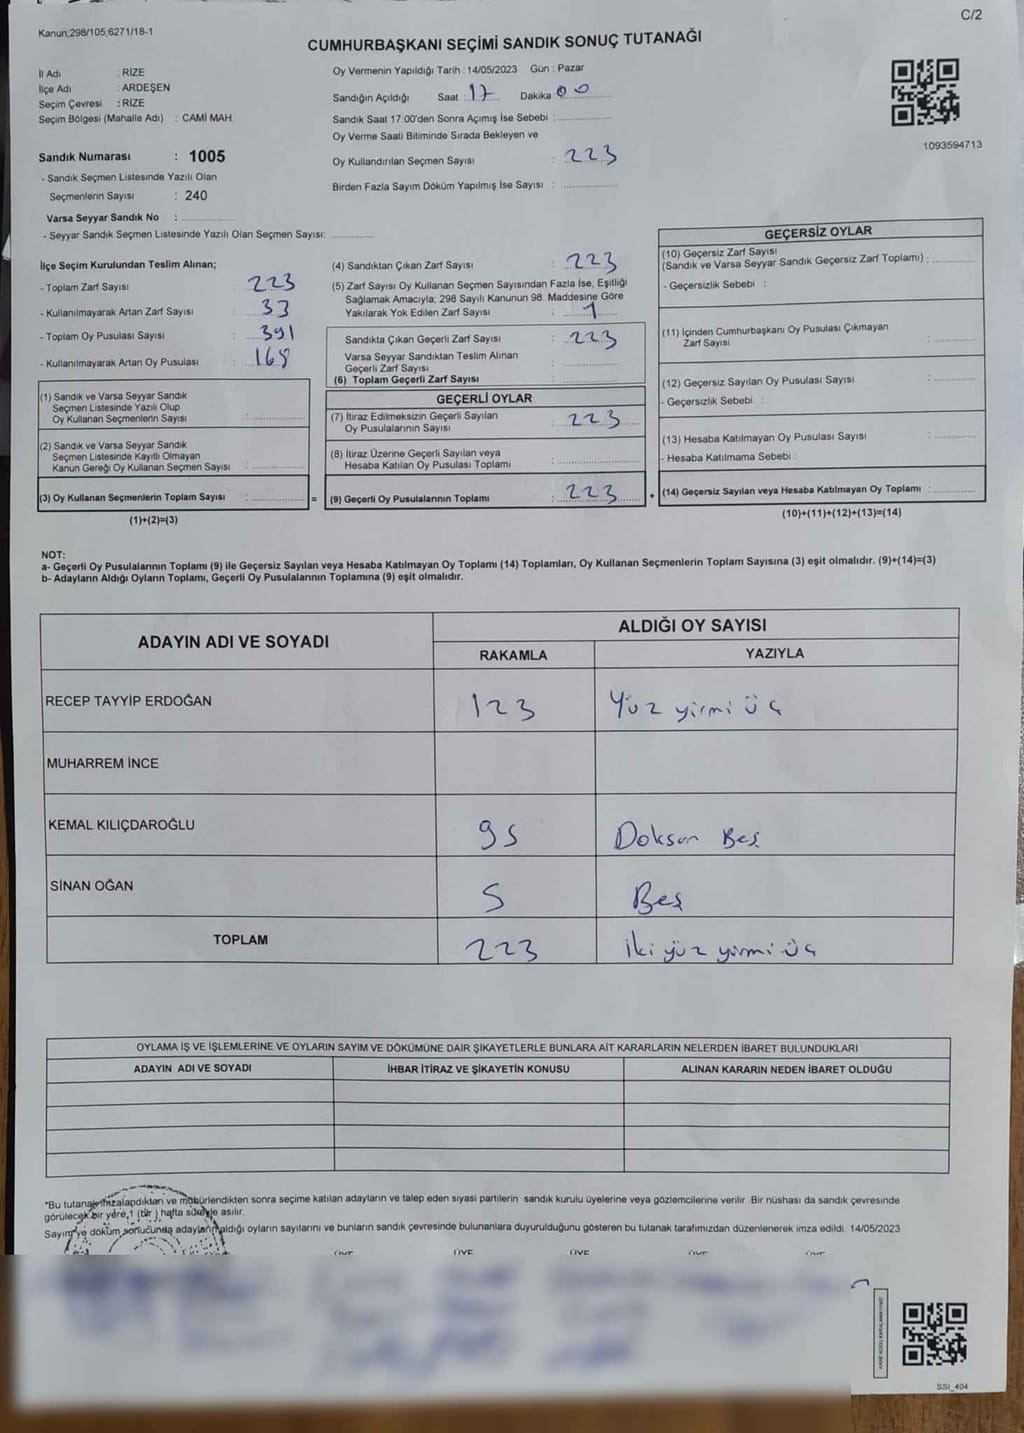 C/2
Kanun;298/105,6271/18-1
CUMHURBAŞKANI SEÇİMİ SANDIK SONUÇ TUTANAĞI
İl Adı : RİZE
İlçe Adı : ARDEŞEN
Seçim Çevresi : RİZE
Seçim Bölgesi (Mahalle Adı) : CAMİ MAH.
Oy Vermenin Yapıldığı Tarih : 14/05/2023 Gün : Pazar
Sandığın Açıldığı Saat : 17 Dakika 00
Sandık Saat 17:00'den Sonra Açımış İse Sebebi :
Oy Verme Saati Bitiminde Sırada Bekleyen ve
Oy Kullandırılan Seçmen Sayısı : 223
Birden Fazla Sayım Döküm Yapılmış İse Sayısı :
1093594713
Sandık Numarası : 1005
- Sandık Seçmen Listesinde Yazılı Olan
Seçmenlerin Sayısı : 240
Varsa Seyyar Sandık No :
- Seyyar Sandık Seçmen Listesinde Yazılı Olan Seçmen Sayısı:
İlçe Seçim Kurulundan Teslim Alınan;
- Toplam Zarf Sayısı : 223
- Kullanılmayarak Artan Zarf Sayısı : 33
- Toplam Oy Pusulası Sayısı : 391
- Kullanılmayarak Artan Oy Pusulası : 168
(1) Sandık ve Varsa Seyyar Sandık
Seçmen Listesinde Yazılı Olup
Oy Kullanan Seçmenlerin Sayısı :
(2) Sandık ve Varsa Seyyar Sandık
Seçmen Listesinde Kayıtlı Olmayan
Kanun Gereği Oy Kullanan Seçmen Sayısı :
(3) Oy Kullanan Seçmenlerin Toplam Sayısı : =
(1)+(2)=(3)
(4) Sandıktan Çıkan Zarf Sayısı : 223
(5) Zarf Sayısı Oy Kullanan Seçmen Sayısından Fazla İse, Eşitliği
Sağlamak Amacıyla; 298 Sayılı Kanunun 98. Maddesine Göre
Yakılarak Yok Edilen Zarf Sayısı : 1
Sandıkta Çıkan Geçerli Zarf Sayısı : 223
Varsa Seyyar Sandıktan Teslim Alınan
Geçerli Zarf Sayısı :
(6) Toplam Geçerli Zarf Sayısı :
GEÇERLİ OYLAR
(7) İtiraz Edilmeksizin Geçerli Sayılan
Oy Pusulalarının Sayısı : 223
(8) İtiraz Üzerine Geçerli Sayılan veya
Hesaba Katılan Oy Pusulası Toplamı :
(9) Geçerli Oy Pusulalarının Toplamı : 223 +
GEÇERSİZ OYLAR
(10) Geçersiz Zarf Sayısı
(Sandık ve Varsa Seyyar Sandık Geçersiz Zarf Toplamı) :
- Geçersizlik Sebebi :
(11) İçinden Cumhurbaşkanı Oy Pusulası Çıkmayan
Zarf Sayısı :
(12) Geçersiz Sayılan Oy Pusulası Sayısı :
- Geçersizlik Sebebi :
(13) Hesaba Katılmayan Oy Pusulası Sayısı :
- Hesaba Katılmama Sebebi :
(14) Geçersiz Sayılan veya Hesaba Katılmayan Oy Toplamı :
(10)+(11)+(12)+(13)=(14)
NOT:
a- Geçerli Oy Pusulalarının Toplamı (9) ile Geçersiz Sayılan veya Hesaba Katılmayan Oy Toplamı (14) Toplamları, Oy Kullanan Seçmenlerin Toplam Sayısına (3) eşit olmalıdır. (9)+(14)=(3)
b- Adayların Aldığı Oyların Toplamı, Geçerli Oy Pusulalarının Toplamına (9) eşit olmalıdır.
ADAYIN ADI VE SOYADI
ALDIĞI OY SAYISI
RAKAMLA YAZIYLA
RECEP TAYYİP ERDOĞAN 123 Yüz yirmi üç
MUHARREM İNCE
KEMAL KILIÇDAROĞLU 95 Doksan Beş
SİNAN OĞAN 5 Beş
TOPLAM 223 İki yüz yirmi üç
OYLAMA İŞ VE İŞLEMLERİNE VE OYLARIN SAYIM VE DÖKÜMÜNE DAİR ŞİKAYETLERLE BUNLARA AİT KARARLARIN NELERDEN İBARET BULUNDUKLARI
ADAYIN ADI VE SOYADI İHBAR İTİRAZ VE ŞİKAYETİN KONUSU ALINAN KARARIN NEDEN İBARET OLDUĞU
*Bu tutanak imzalandıktan ve mühürlendikten sonra seçime katılan adayların ve talep eden siyasi partilerin sandık kurulu üyelerine veya gözlemcilerine verilir. Bir nüshası da sandık çevresinde
görülecek bir yere 1 (bir) hafta süreyle asılır.
Sayım ve döküm sonucunda adayların aldığı oyların sayılarını ve bunların sandık çevresinde bulunanlara duyurulduğunu gösteren bu tutanak tarafımızdan düzenlenerek imza edildi. 14/05/2023
ÜYE ÜYE ÜYE ÜYE ÜYE
SSI_404